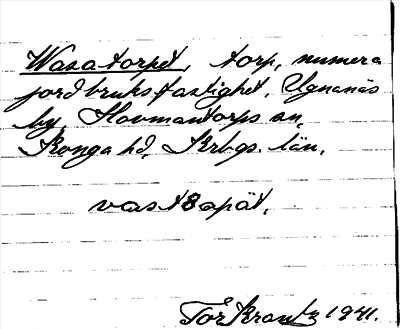 Wasatorpet, torp, numera
jordbruksfastighet, Ugnanäs
by, Hovmantorps sn,
Konga hd, Krbgs. län.
Tor Krantz 1941.